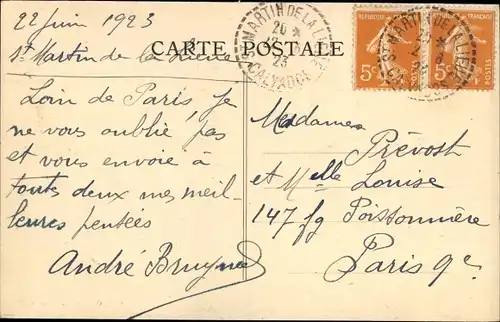 22 juin 1923
St Martin de la Lieue
CARTE POSTALE
Loin de Paris, je
ne vous oublie pas
et vous envoie à
toutes deux mes meil-
leures pensées
André Bruyne
ST MARTIN DE LA LIEUE
20 *
23
CALVADOS
REPUBLIQUE FRANCAISE
5c
5c
Mesdames
Prévost
et Melle Louise
147 fg Poissonnière
Paris 9e